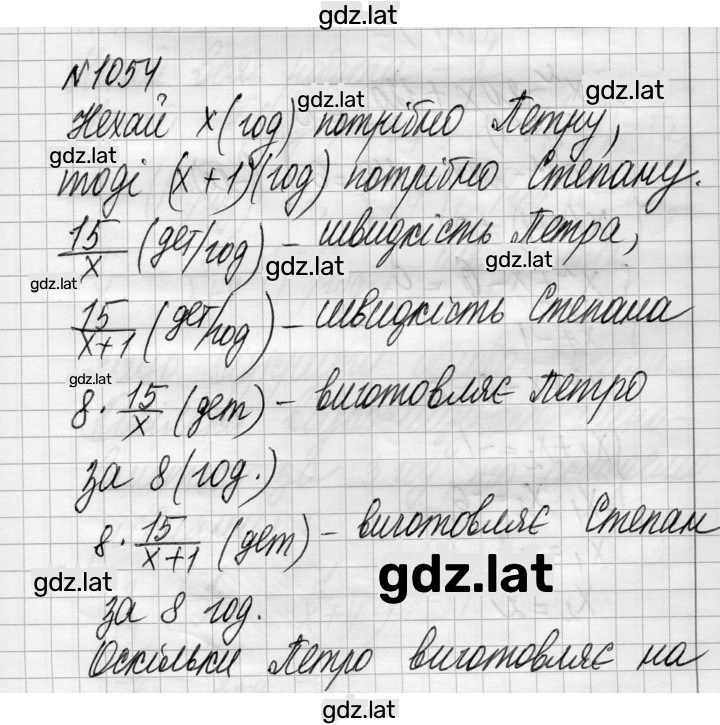 gdz.lat
№1054
gdz.lat gdz.lat
Нехай x (год) потрібно Петру,
gdz.lat
тоді (x+1)(год) потрібно Степану.
15/x (дет/год) – швидкість Петра,
gdz.lat gdz.lat gdz.lat
15/x+1 (дет/год) – швидкість Степана
gdz.lat
8 · 15/x (дет) – виготовляє Петро
за 8 (год.)
8 · 15/x+1 (дет) – виготовляє Степан
gdz.lat gdz.lat
за 8 год.
Оскільки Петро виготовляє на
gdz.lat